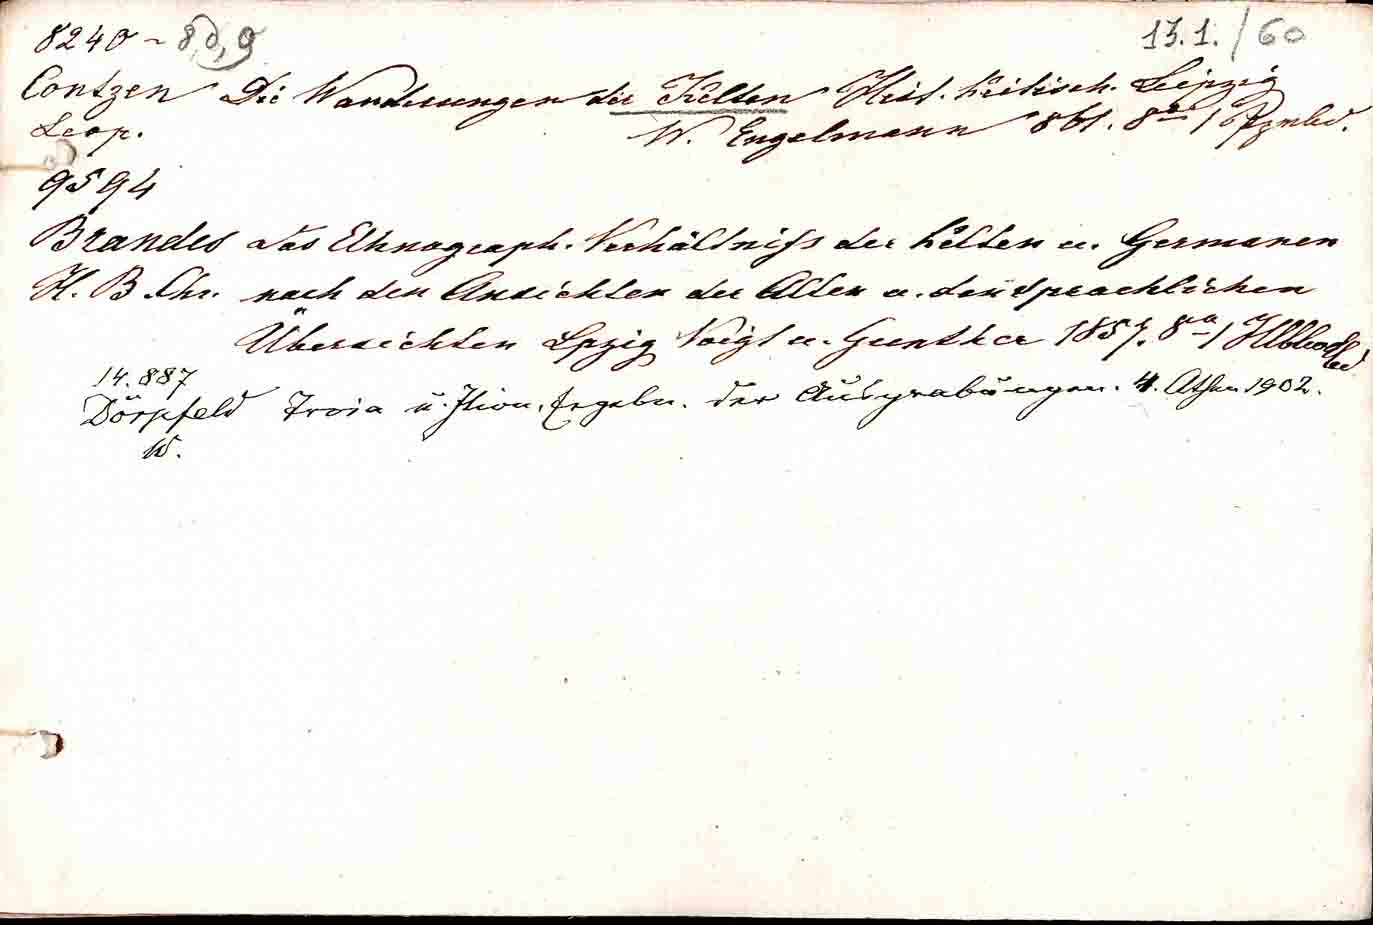 8240 - 8d, 9 13.1./60
Contzen Die Wanderungen der Kelten Hist. kritisch. Leipzig
Leop. W. Engelmann 861. 8° 1 Ppnbd.
9594
Brandes das Ethnograph. Verhältniss der Kelten u. Germanen
H. B. Chr. nach den Ansichten der Alten u. den sprachlichen
Übersichten Lpzig Voigt u. Gunther 1857. 8° 1
14.887
Dörpfeld Troia u. Ilion. Ergebn. der Ausgrabungen. 4. Athen 1902.
W.